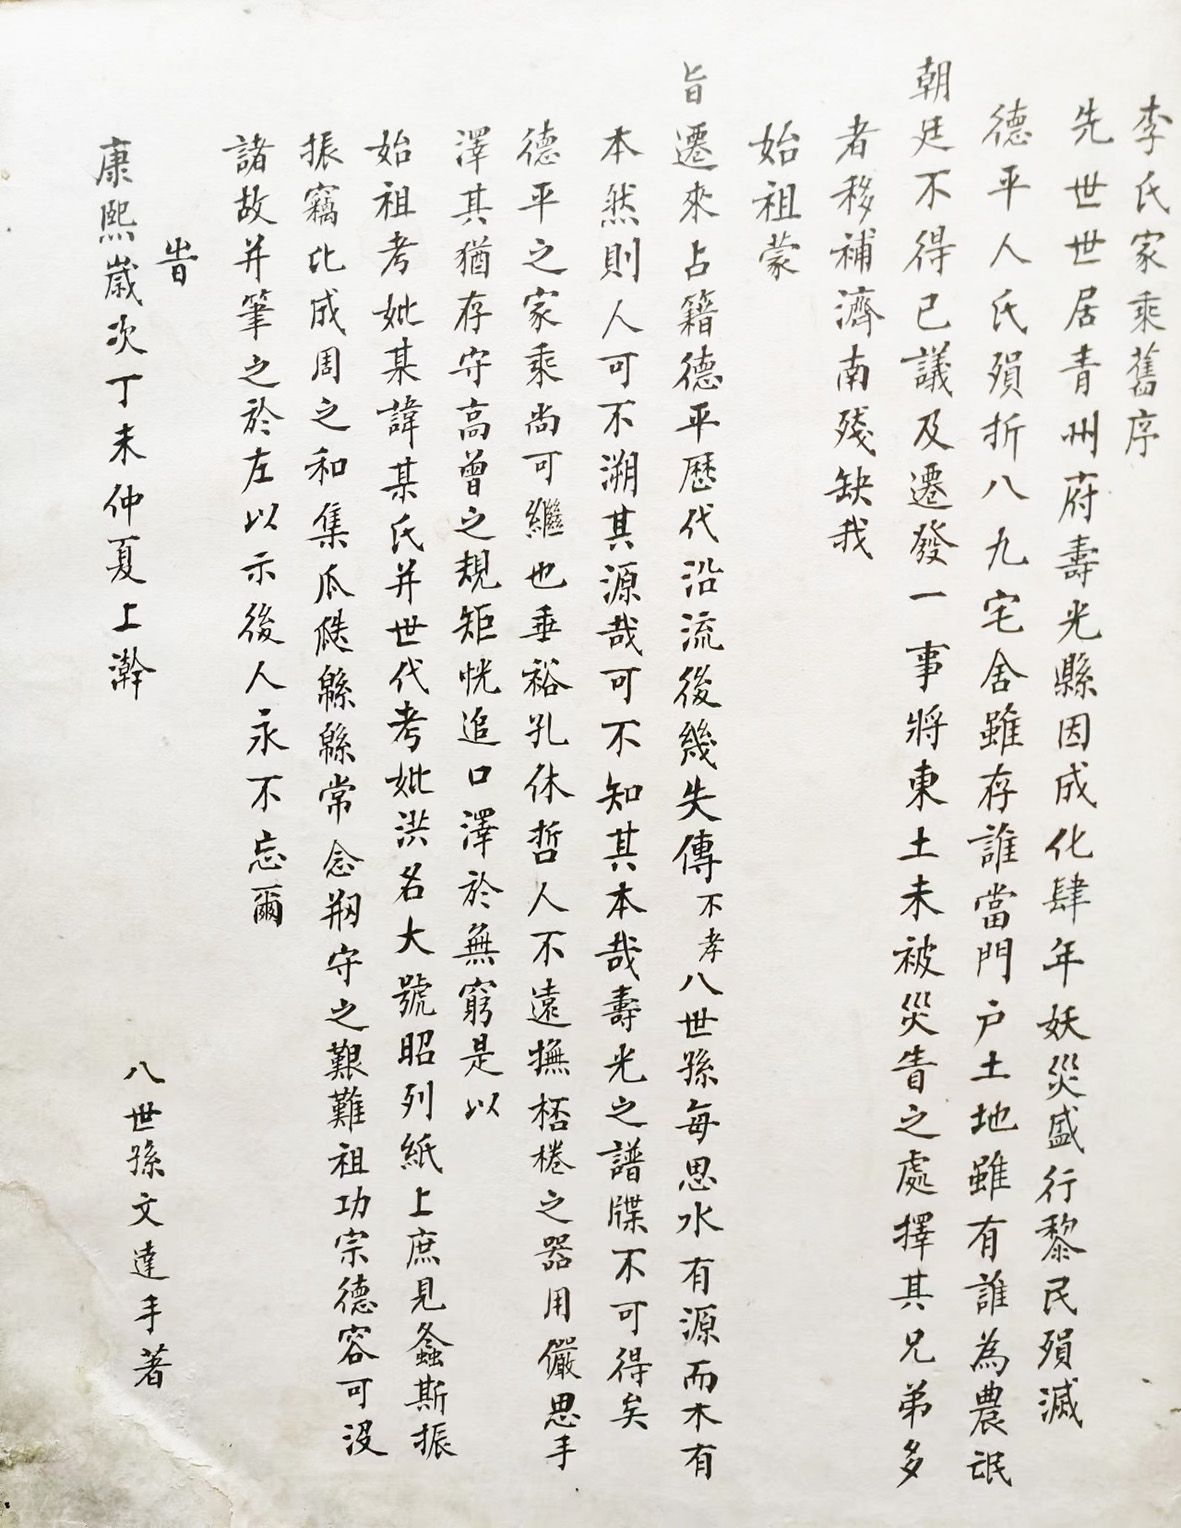 李氏家乘舊序
先世世居青州府壽光縣因成化肆年妖災盛行黎民殞滅
德平人氏殞折八九宅舍雖存誰當門户土地雖有誰為農氓
朝廷不得已議及遷發一事將東土未被災眚之處擇其兄弟多
者移補濟南残缺我
始祖蒙
旨遷來占籍德平歷代沿流後幾失傳不孝八世孫每思水有源而木有
本然則人可不溯其源哉可不知其本哉壽光之譜牒不可得矣
德平之家乘尚可繼也垂裕孔休哲人不遠撫桮棬之器用儼思手
澤其猶存守高曾之規矩恍追口澤於無窮是以
始祖考妣某諱某氏并世代考妣洪名大號昭列紙上庶見螽斯振
振竊比成周之和集瓜瓞緜緜常念剏守之艱難祖功宗德容可沒
諸故并筆之於左以示後人永不忘爾
旹
康熙歲次丁未仲夏上澣
八世孫文達手著